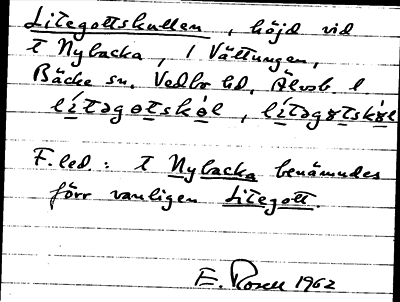 Litegottskullen, höjd vid
t Nybacka, i Vättungen,
Bäcke sn. Vedbo hd. Älvsb. l
lítəgotskol, lítəgɤtskɤl
F.led.: t Nybacka benämndes
förr vanligen Litegott.
E. Rosell 1962